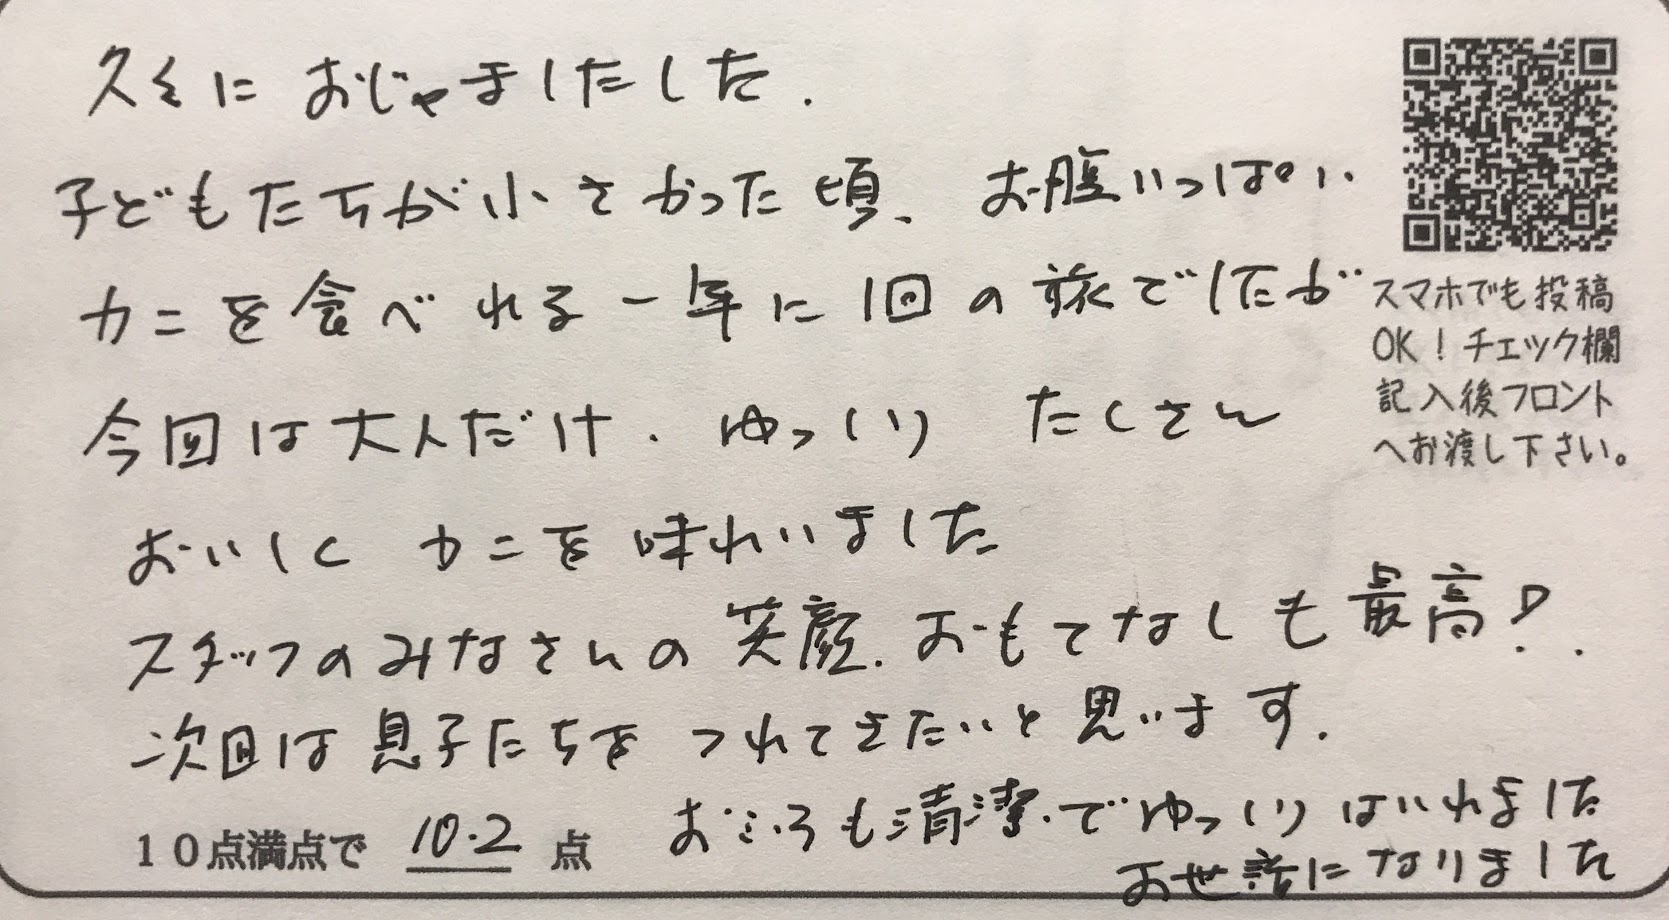 久々に おじゃましたした.
子どもたちが小さかった頃、お腹いっぱい
カニを食べれる一年に1回の旅でしたが
今回は大人だけ. ゆっくり たくさん
おいしく カニを味わいました
スタッフのみなさんの笑顔.おもてなしも最高!.
次回は息子たちを つれてきたいと思います.
おふろも清潔.でゆっくりはいれました
お世話になりました
10点満点で 10.2 点
スマホでも投稿
OK!チェック欄
記入後フロント
へお渡し下さい。